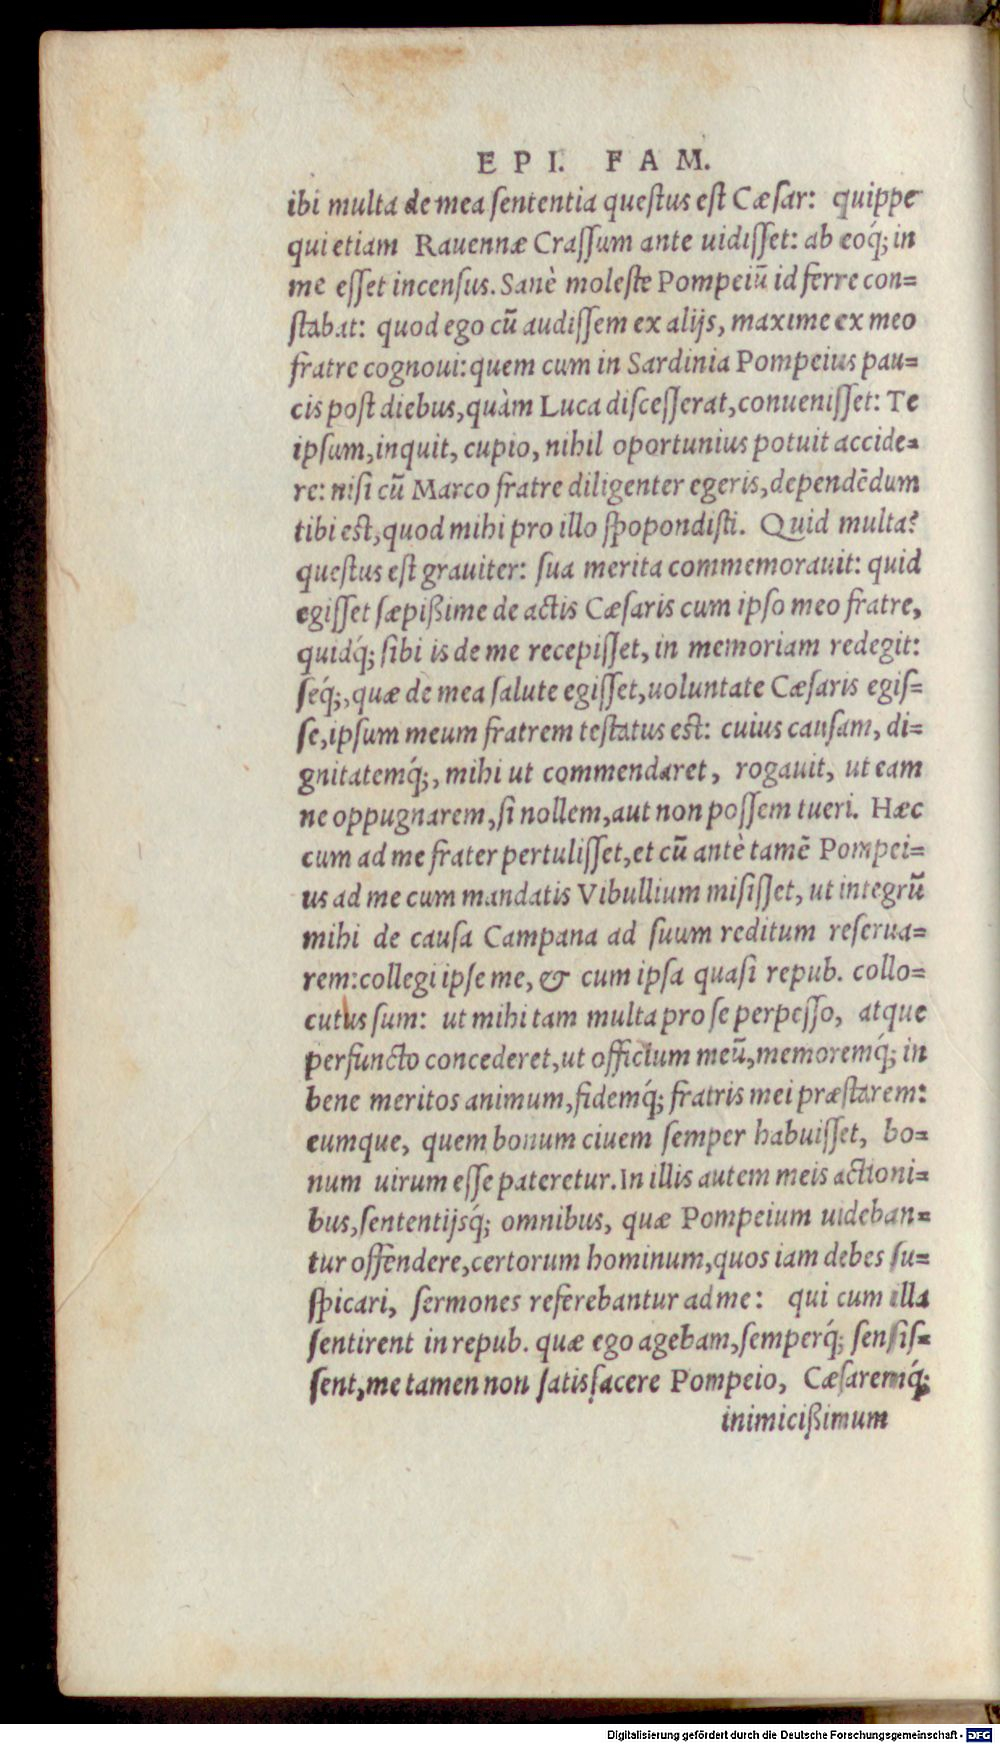 EPI. FAM.
ibi multa de mea ſententia queſtus eſt Cæſar: quippe
qui etiam Rauennæ Craſſum ante uidiſſet: ab eoq́; in
me eſſet incenſus. Sanè moleſte Pompeiũ id ferre con=
ſtabat: quod ego cũ audiſſem ex alijs, maxime ex meo
fratre cognoui: quem cum in Sardinia Pompeius pau=
cis poſt diebus, quàm Luca diſceſſerat, conueniſſet: Te
ipſum, inquit, cupio, nihil oportunius potuit accide=
re: niſi cũ Marco fratre diligenter egeris, dependẽdum
tibi eſt, quod mihi pro illo ſpopondiſti. Quid multa?
queſtus eſt grauiter: ſua merita commemorauit: quid
egiſſet ſæpißime de actis Cæſaris cum ipſo meo fratre,
quidq́; ſibi is de me recepiſſet, in memoriam redegit:
ſeq́;, quæ de mea ſalute egiſſet, uoluntate Cæſaris egiſ=
ſe, ipſum meum fratrem teſtatus eſt: cuius cauſam, di=
gnitatemq́;, mihi ut commendaret, rogauit, ut eam
ne oppugnarem, ſi nollem, aut non poſſem tueri. Hæc
cum ad me frater pertuliſſet, et cũ antè tamẽ Pompei=
us ad me cum mandatis Vibullium miſiſſet, ut integrũ
mihi de cauſa Campana ad ſuum reditum reſerua=
rem: collegi ipſe me, & cum ipſa quaſi repub. collo=
cutus ſum: ut mihi tam multa pro ſe perpeſſo, atque
perfuncto concederet, ut officium meũ, memoremq́; in
bene meritos animum, fidemq́; fratris mei præſtarem:
eumque, quem bonum ciuem ſemper habuiſſet, bo=
num uirum eſſe pateretur. In illis autem meis actioni=
bus, ſententijsq́; omnibus, quæ Pompeium uideban=
tur offendere, certorum hominum, quos iam debes ſu=
ſpicari, ſermones referebantur ad me: qui cum illa
ſentirent in repub. quæ ego agebam, ſemperq́; ſenſiſ=
ſent, me tamen non ſatisfacere Pompeio, Cæſaremq́;
inimicißimum
Digitalisierung gefördert durch die Deutsche Forschungsgemeinschaft - DFG